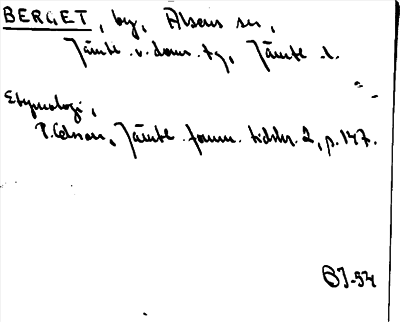 BERGET, by, Alsens sn,
Jämtl. v. doms. tg, Jämtl. l.
Etymologi,
P. Olsson, Jämtl. fornm. tidskr. 2, p. 147.